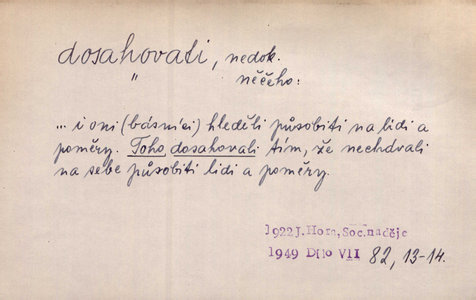 dosahovati, nedok.
" něčeho:
... i oni (básníci) hleděli působiti na lidi a
poměry. Toho dosahovali tím, že nechávali
na sebe působiti lidi a poměry.
1922 J. Hora, Soc. naděje
1949 Dílo VII 82, 13-14.